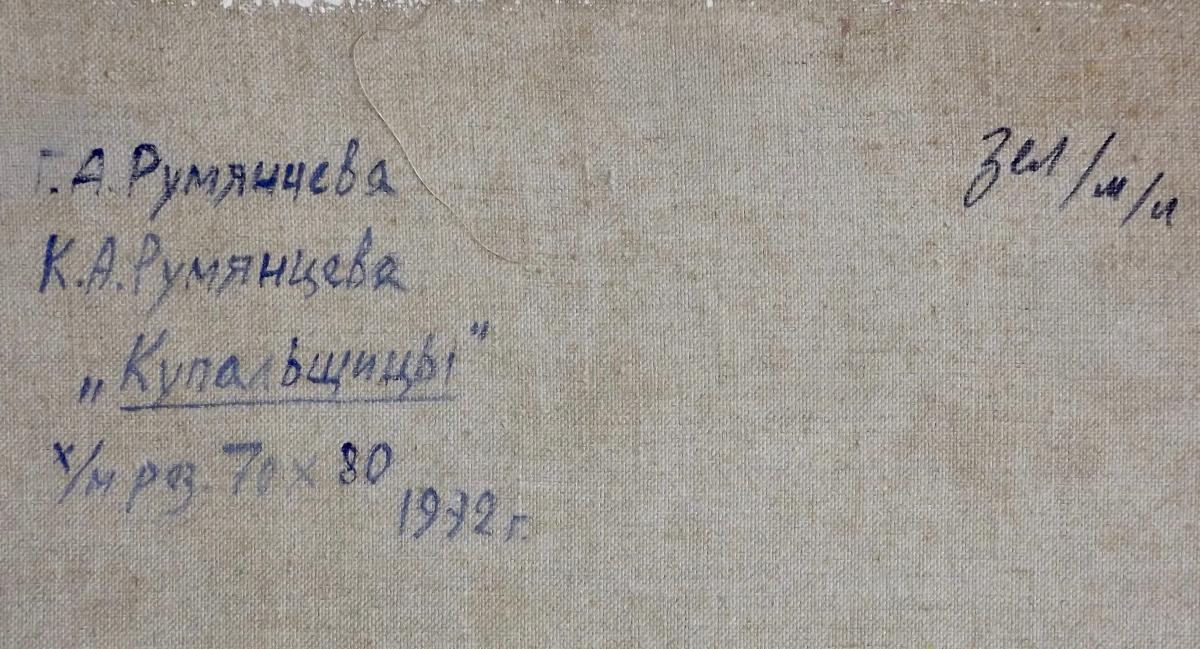 Г.А.Румянцева
К.А.Румянцева
„Купальщицы"
х/м раз. 70х80
1972 г.
Зел/м/и